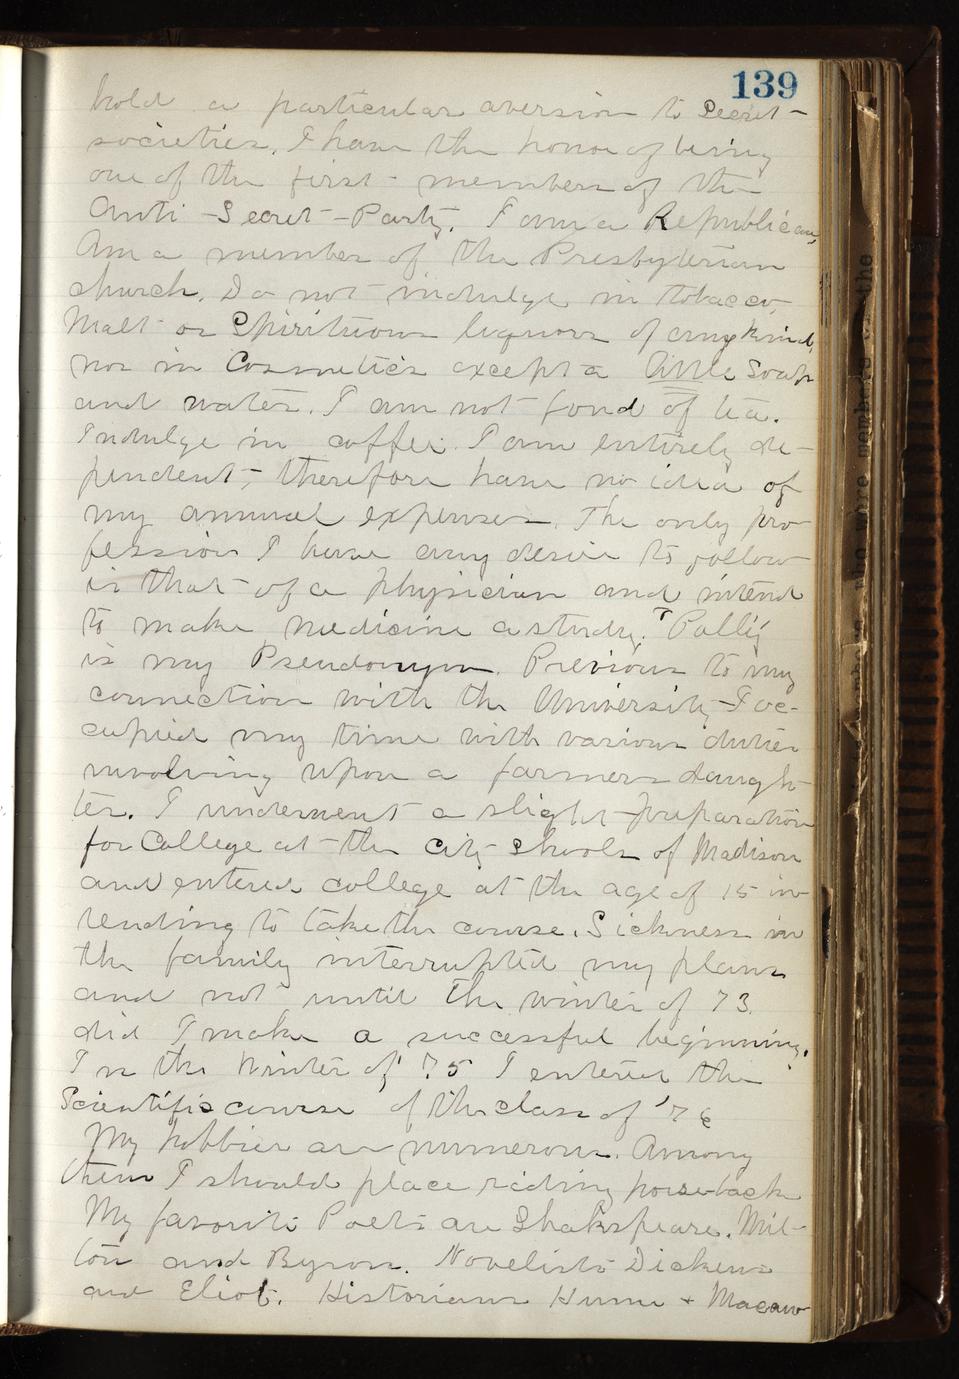 139
hold a particular aversion to Secret-
societies. I have the honor of being
one of the first members of the
Anti-Secret-Party. I am a Republican,
Am a member of the Presbyterian
church. Do not indulge in tobacco,
Malt or Spirituous liquors of any kind,
nor in Cosmetics except a little soap
and water. I am not fond of tea.
Indulge in coffee. I am entirely de-
pendent, therefore have no idea of
my annual expenses. The only pro-
fession I have any desire to follow
is that of a physician and intend
to make medicine a study. "Polly"
is my Pseudonym. Previous to my
connection with the University I oc-
cupied my time with various duties
involving upon a farmers daugh-
ter. I underwent a slight preparation
for College at the city Schools of Madison
and entered college at the age of 15 in-
tending to take the course. Sickness in
the family interrupted my plans
and not until the winter of 73
did I make a successful beginning.
In the Winter of '75 I entered the
Scientific course of the class of '76
My hobbies are numerous. Among
them I should place riding horseback
My favorite Poets are Shakspeare. Mil-
ton and Byron. Novelists Dickens
and Eliot. Historians Hume + Macaw